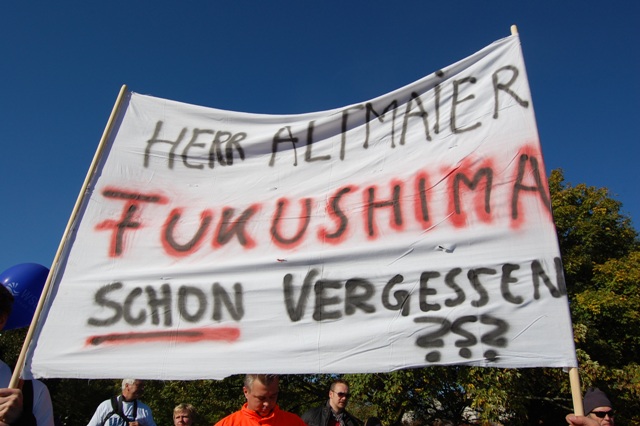 HERR ALTMAIER
FUKUSHIMA
SCHON VERGESSEN
???